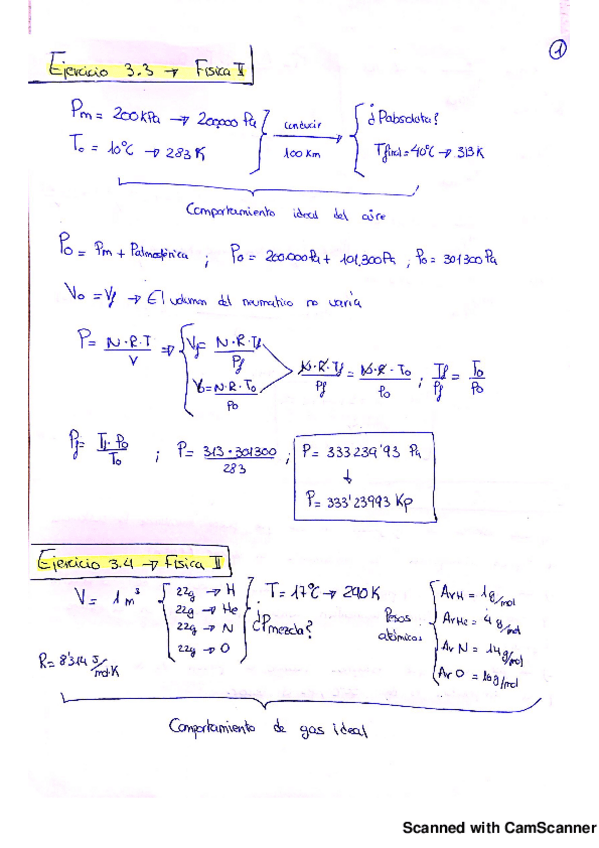 ①
Ejercicio 3.3 → Física II
Pm = 200 kPa → 200.000 Pa
T₀ = 10°C → 283 K
conducir
100 Km
¿Pabsoluta?
Tfinal = 40°C → 313 K
Comportamiento ideal del aire
P₀ = Pm + Patmosférica ; P₀ = 200.000 Pa + 101.300 Pa ; P₀ = 301300 Pa
V₀ = Vf → El volumen del neumatico no varía
P = N·R·T / V ⇒ { Vf = N·R·Tf / Pf
V₀ = N·R·T₀ / P₀
N·R·Tf / Pf = N·R·T₀ / P₀ ; Tf / Pf = T₀ / P₀
Pf = Tf·P₀ / T₀ ; P = 313·301300 / 283 ; P = 333239'93 Pa
↓
P = 333'23993 Kp
Ejercicio 3.4 → Física II
V = 1 m³
22g → H
22g → He
22g → N
22g → O
T = 17°C → 290 K
¿Pmezcla?
Pesos atómicos
Ar H = 1 g/mol
Ar He = 4 g/mol
Ar N = 14 g/mol
Ar O = 16 g/mol
R = 8'314 J/mol·K
Comportamiento de gas ideal
Scanned with CamScanner